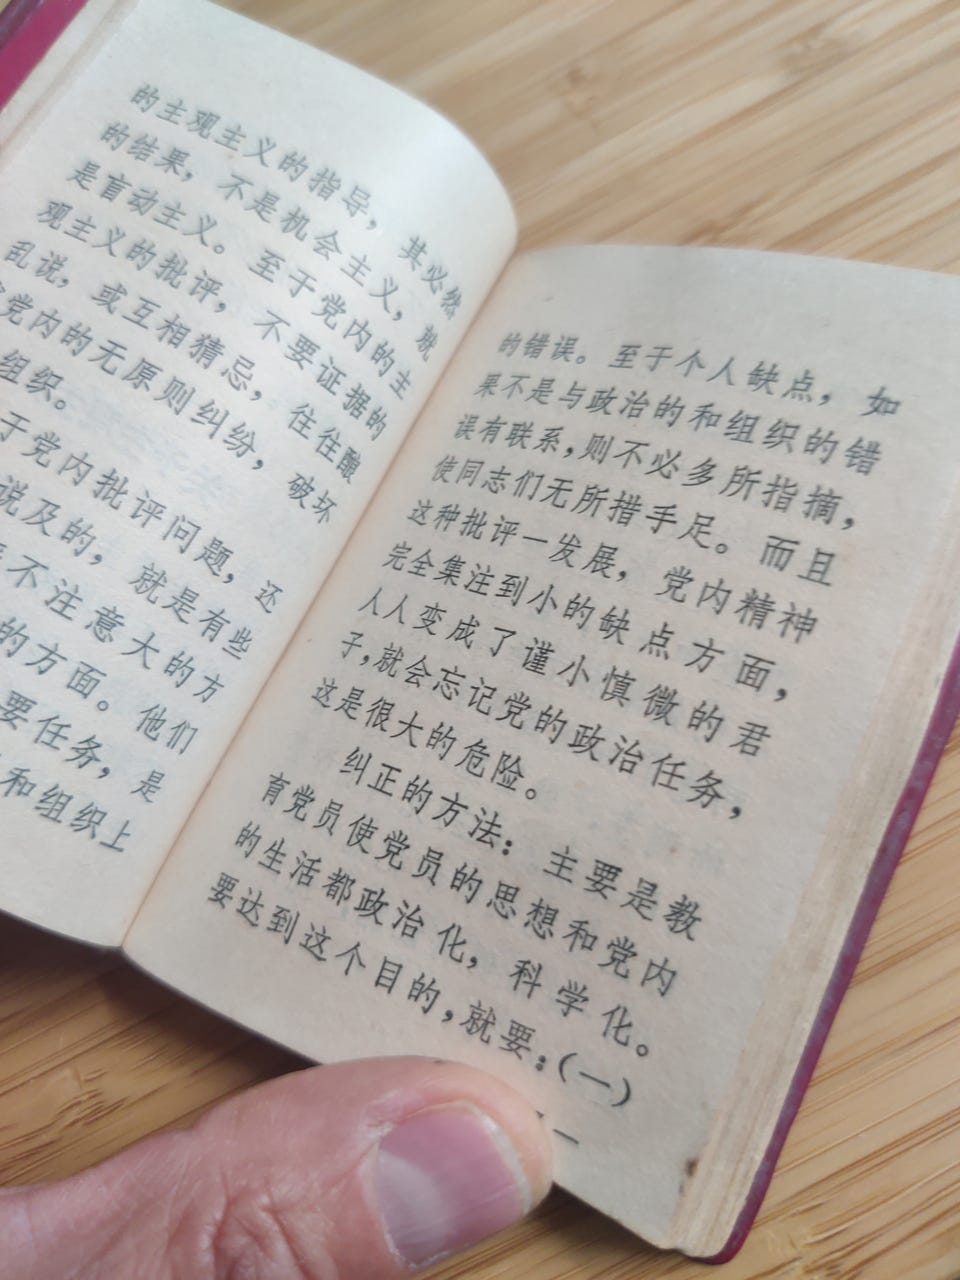 的主观主义的指导，其必然
的结果，不是机会主义，就
是盲动主义。至于党内的主
观主义的批评，不要证据的
乱说，或互相猜忌，往往酿
党内的无原则纠纷，破坏
组织。
于党内批评问题，还
说及的，就是有些
不注意大的方
的方面。他们
要任务，是
和组织上
的错误。至于个人缺点，如
果不是与政治的和组织的错
误有联系，则不必多所指摘，
使同志们无所措手足。而且
这种批评一发展，党内精神
完全集注到小的缺点方面，
人人变成了谨小慎微的君
子，就会忘记党的政治任务，
这是很大的危险。
纠正的方法：主要是教
育党员使党员的思想和党内
的生活都政治化，科学化。
要达到这个目的，就要：（一）